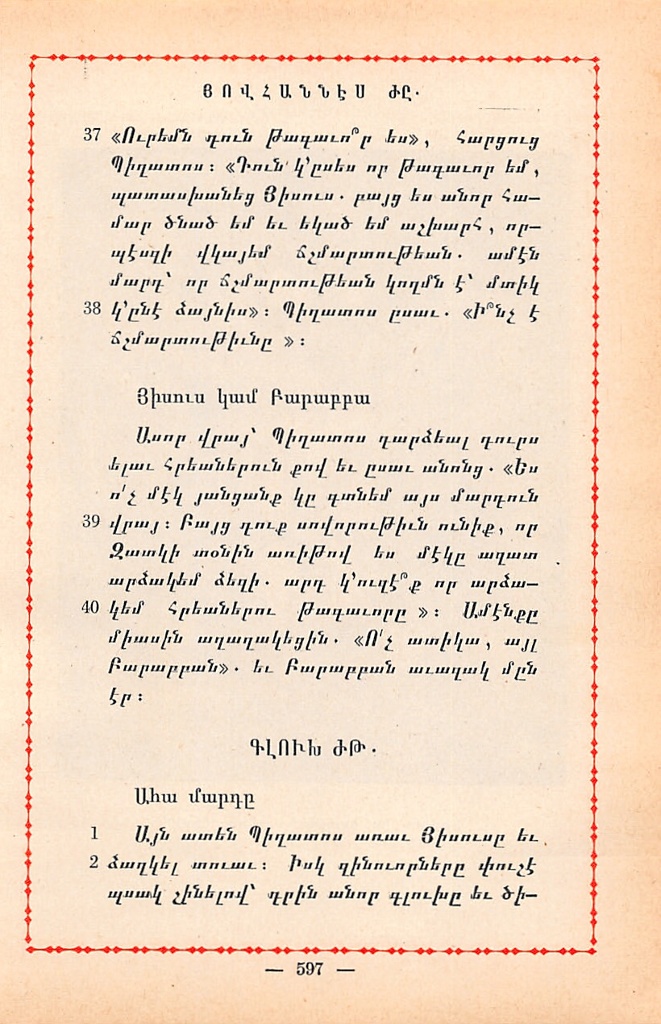 ՅՈՎՀԱՆՆԷՍ ԺԸ.
37 «Ուրեմն դուն թագաւո՞ր ես», հարցուց
Պիղատոս։ «Դուն կ՚ըսես որ թագաւոր եմ,
պատասխանեց Յիսուս. բայց ես անոր հա—
մար ծնած եմ եւ եկած եմ աշխարհ, որ—
պէսզի վկայեմ ճշմարտութեան. ամէն
մարդ՝ որ ճշմարտութեան կողմն է՝ մտիկ
38 կ՚ընէ ձայնիս»։ Պիղատոս ըսաւ. «Ի՞նչ է
ճշմարտութիւնը »։
Յիսուս կամ Բարաբբա
Ասոր վրայ՝ Պիղատոս դարձեալ դուրս
ելաւ Հրեաներուն քով եւ ըսաւ անոնց. «Ես
ո՛չ մէկ յանցանք կը գտնեմ այս մարդուն
39 վրայ։ Բայց դուք սովորութիւն ունիք, որ
Զատկի տօնին առիթով ես մէկը ազատ
արձակեմ ձեզի. արդ կ՚ուզէ՞ք որ արձա—
40 կեմ Հրեաներու թագաւորը »։ Ամէնքը
միասին աղաղակեցին. «Ո՛չ ատիկա, այլ
Բարաբբան». եւ Բարաբբան աւազակ մըն
էր։
ԳԼՈՒԽ ԺԹ.
Ահա մարդը
1 Այն ատեն Պիղատոս առաւ Յիսուսը եւ
2 ձաղկել տուաւ։ Իսկ զինուորները փուշէ
պսակ շինելով՝ դրին անոր գլուխը եւ ծի—
— 597 —